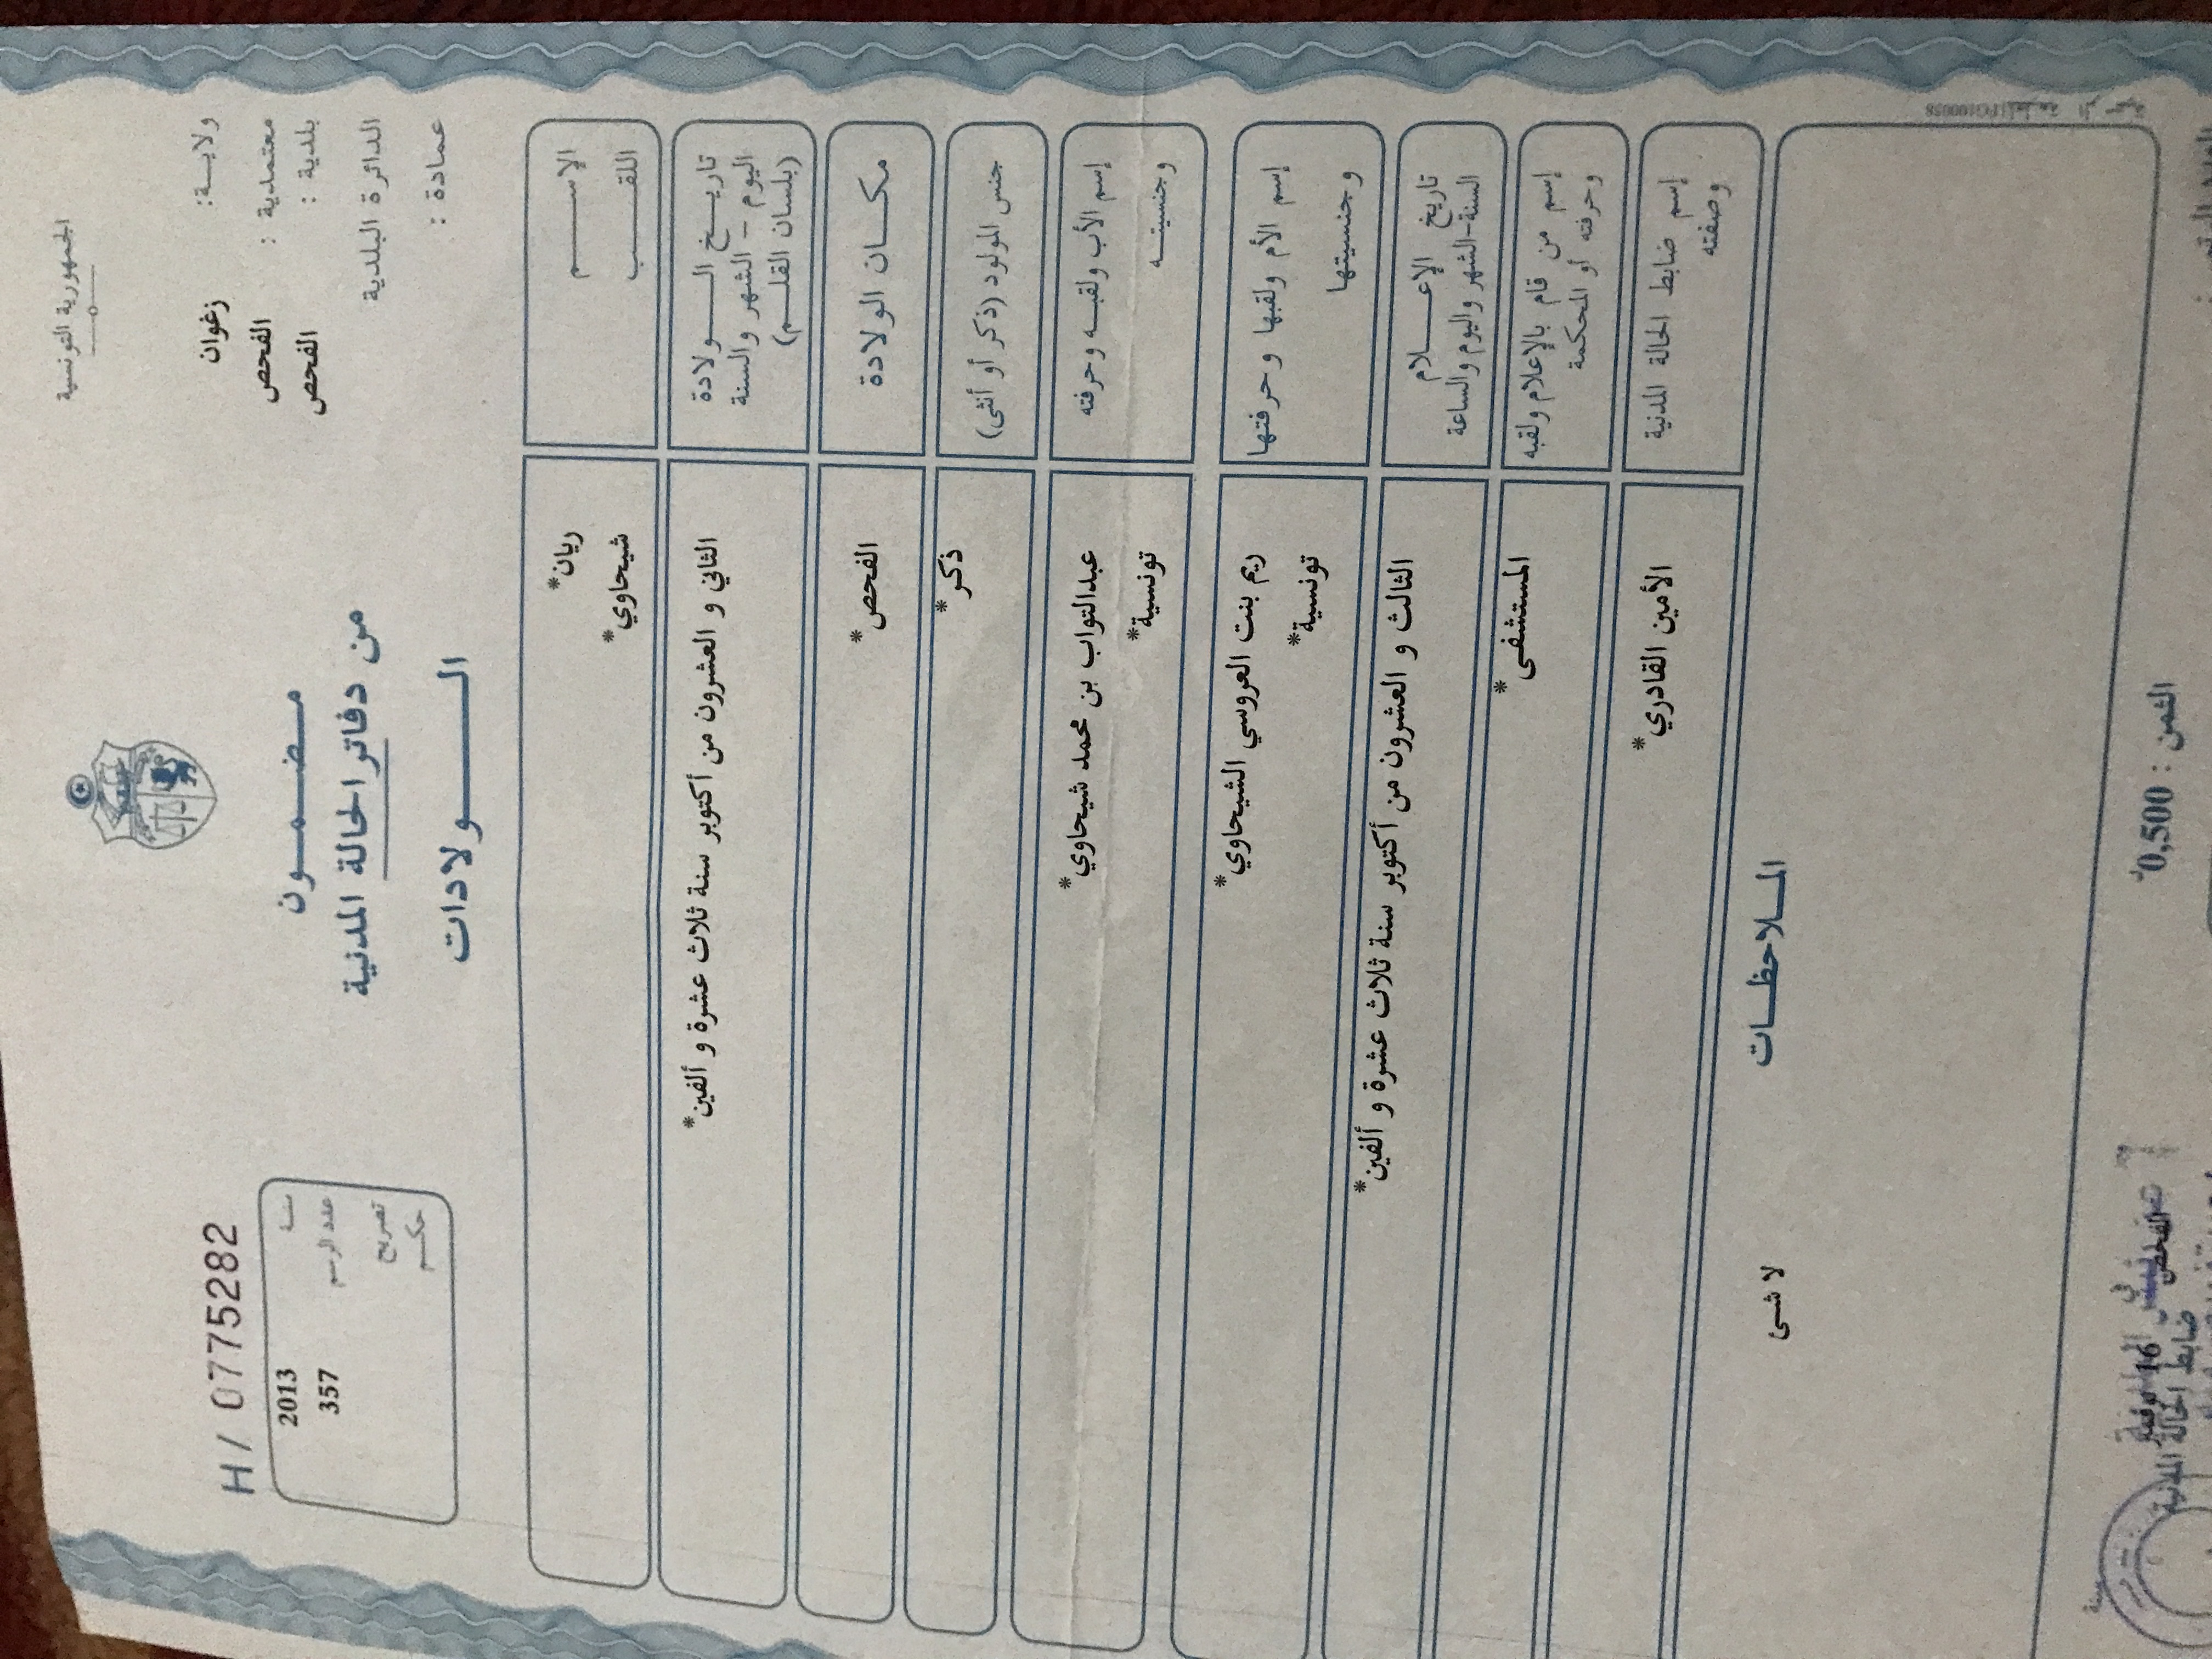 الجمهورية التونسية
ولاية: زغوان
معتمدية : الفحص
بلدية : الفحص
الدائرة البلدية
عمادة :
مضمون
من دفاتر الحالة المدنية
الولادات
H/ 0775282
سنة 2013
عدد الرسم 357
تصريح
حكم
الإسم ريان*
اللقب شيحاوي*
تاريخ الولادة
اليوم - الشهر والسنة
(بلسان القلم)
الثاني و العشرون من أكتوبر سنة ثلاث عشرة و ألفين*
مكان الولادة الفحص*
جنس المولود (ذكر أو أنثى) ذكر*
إسم الأب ولقبه وحرفته عبدالتواب بن محمد شيحاوي*
وجنسيته تونسية*
إسم الأم ولقبها وحرفتها ريم بنت العروسي الشيحاوي*
وجنسيتها تونسية*
تاريخ الإعلام
السنة-الشهر واليوم والساعة
الثالث و العشرون من أكتوبر سنة ثلاث عشرة و ألفين*
إسم من قام بالإعلام ولقبه
وحرفته أو المحكمة
المستشفى*
إسم ضابط الحالة المدنية
وصفته
الأمين القادري*
الملاحظات
لا شئ
الثمن : 0,500د
الفحص في 16
ضابط الحالة المدنية